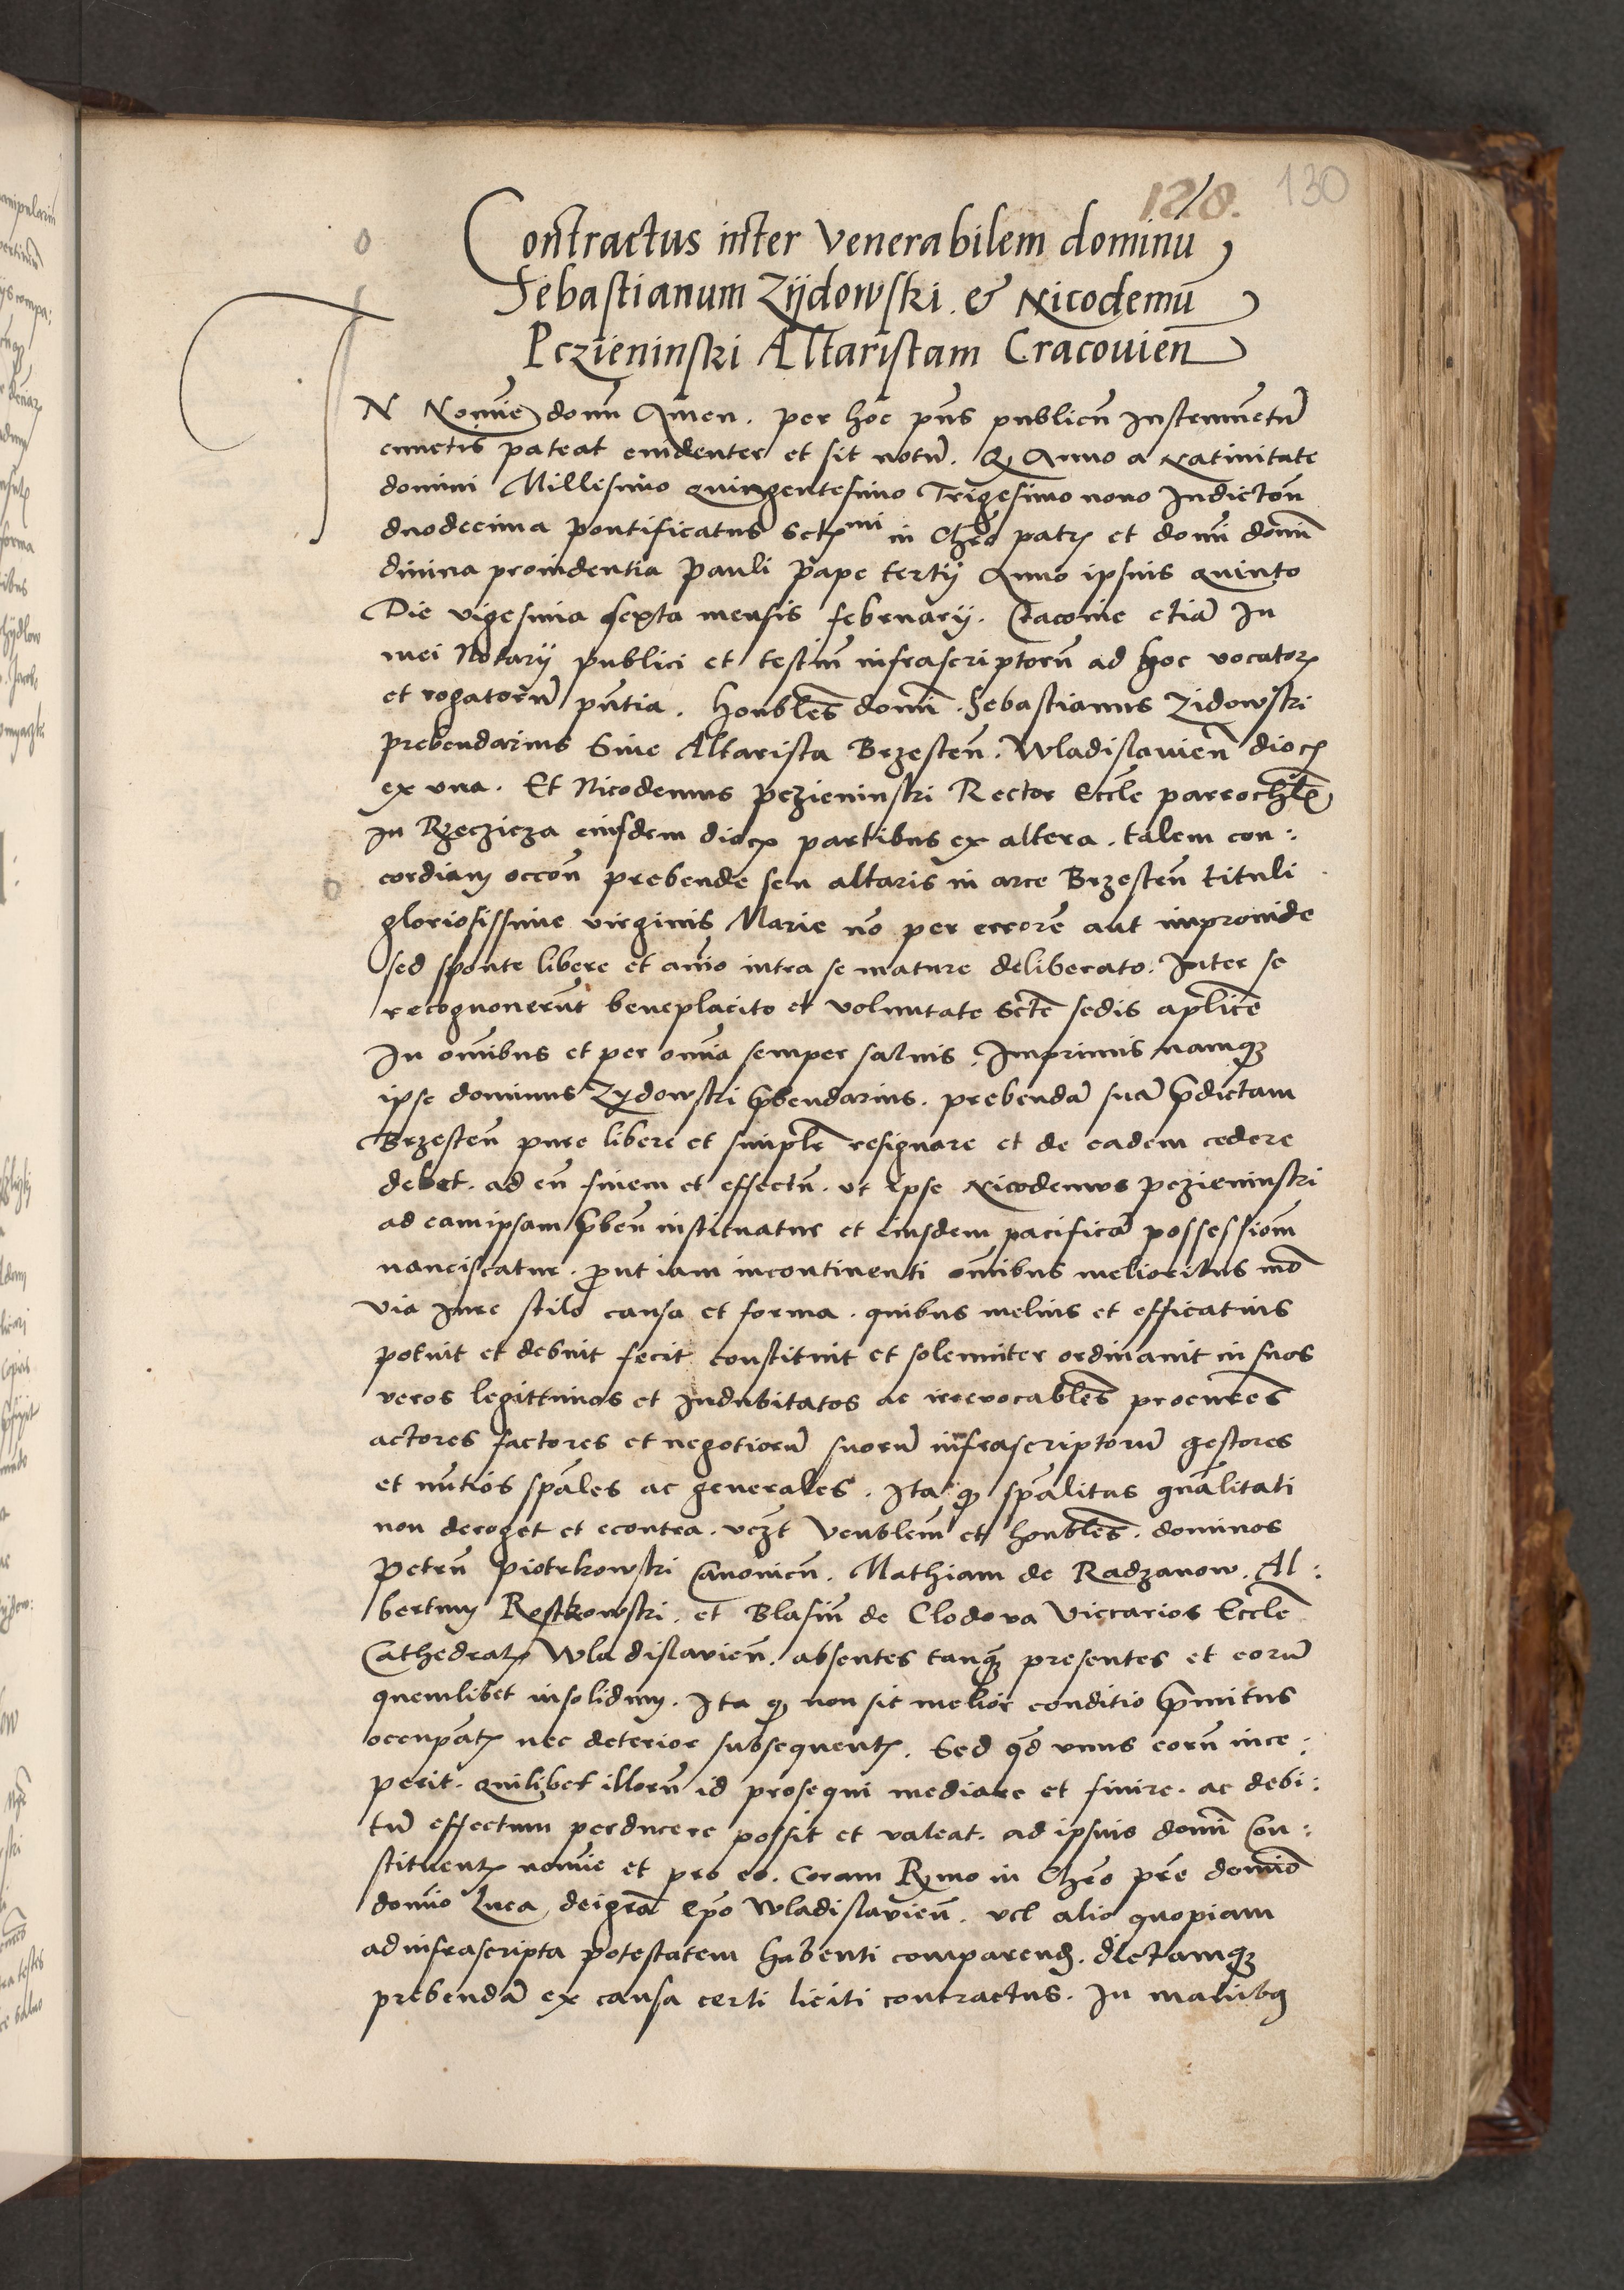 128. 130
Contractus inter Venerabilem dominū
Sebastianum Zÿdowski. & Nicodemū
Pczieninski Altaristam Cracouien̄
IN Nomīe domī Amen. per hoc pn̄s publicū Instrumētū
cunctis pateat euidenter et sit notū. Qꝫ Anno a Natiuitate
domini Millesimo quingentesimo Trigesimo nono Indictōn
duodecima pontificatus Sctꝭmi in Chrō patrꝭ et domī domī
diuina prouidentia Pauli Pape tertij Anno ipsuis quinto
Die vigesima sexta mensis februarij. Cracouie etiā In
mei Notarij publici et testiū infrascriptorū ad hoc vocatorꝭ
et rogatorū pn̄tia. honblēs domī. Sebastianus Zidowski
prebendarius Siue Altarista Brzesten̄. Wladislauien̄ diocꝭ
ex vna. Et Nicodemus pczieninski Rector Eccle parrochlē
In Rzeczicza eiusdem diocꝭ partibus ex altera. talem con:
cordiam occōn prebende seu altaris in arce Brzesten̄ tituli
gloriosissime virginis Marie nō per errorē aut improuide
sed sponte libere et aīo intra se mature deliberato. Inter se
recognouerūt beneplacito et voluntate Sctē sedis aplicē
In omībus et per omīa semper saluis. Imprimis namqꝫ
ipse dominus Zydowski p̄bendarius. prebendā suā p̄dictam
Brzesten̄ pure libere et simplr̄ resignare et de eadem cedere
debet. ad eū finem et effectū. vt ipse Nicodemus pczieninski
ad eamipsam p̄ben̄ instituatur et eiusdem pacificā possessiom̄
nanciscatur. put iam incontinenti omībus melioribus mō
via Iure stilo causa et forma. quibus melius et efficatius
potuit et debuit fecit constituit et solenniter ordinauit in suos
veros legittimos et Indubitatos ac irreuocablēs procurēs
actores factores et negotiorū suorū infrascriptorū gestores
et nūtios spāles ac generales. Ita qꝫ spālitas gnālitati
non deroget et econtra. vczt Venblem̄ et honblēs. dominos
Petrū Piotrkowski Canonicū. Mathiam de Radzanow. Al:
bertum Rostkowski. et Blasiū de Clodova Viccarios Ecclē
Cathedralꝭ Wladislavien̄. absentes tanqꝫ presentes et eorū
quemlibet insolidum. Ita qꝫ non sit melior conditio p̄mitus
occupātꝭ nec deterior subsequentꝭ. Sed qd̄ vnus eorū ince:
perit. quilibet illorū id prosequi mediare et finire. ac debi:
tū effectum perducere possit et valeat. ad ipsuis domī Con:
stituentꝭ nomīe et pro eo. Coram Rꝫmo in Chrō prē domīo
domīo Luca, deigrā Epō Wladislavien̄. vel alio quopiam
ad infrascripta potestatem habenti comparend. dictamqꝫ
prebendā ex causa certi liciti contractus. In manibꝫ